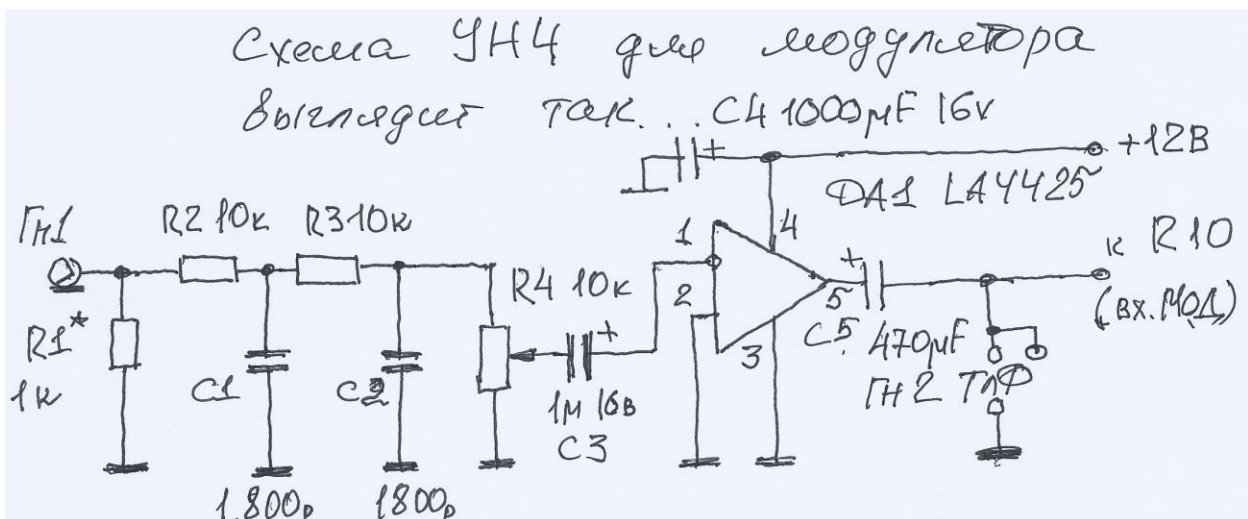 Схема УНЧ для модулятора
выглядит так... C4 1000µF 16v
+12В
DA1 LA4425
Гн1
R2 10к
R3 10к
1
4
к R10
R4 10к
2
5
(вх.МОД)
R1*
1к
C1
C2
3
C5
470µF
1м 16в
C3
ГН2 ТлФ
1.800р
1800р